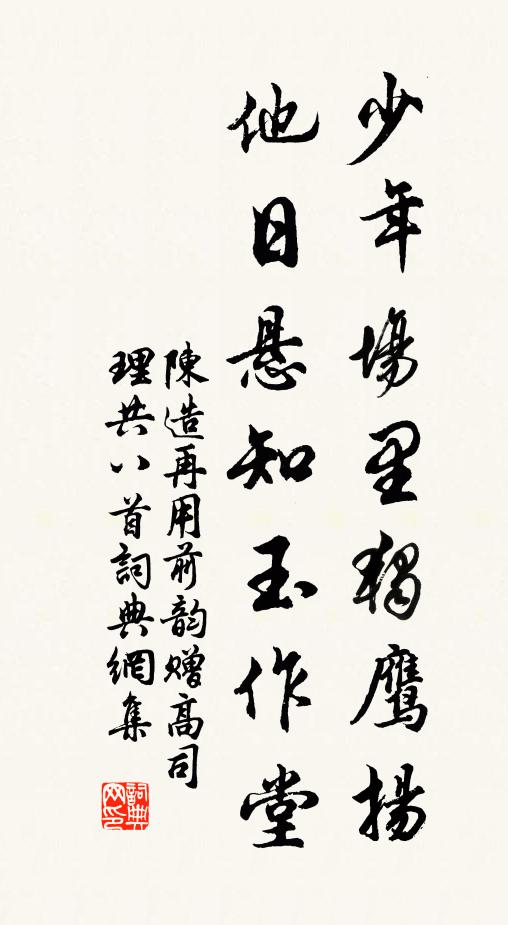 少年場里獨鹰揚
他日悬知玉作堂
陳造再用前韵贈高司
理共八首詞典網集
詞典网印